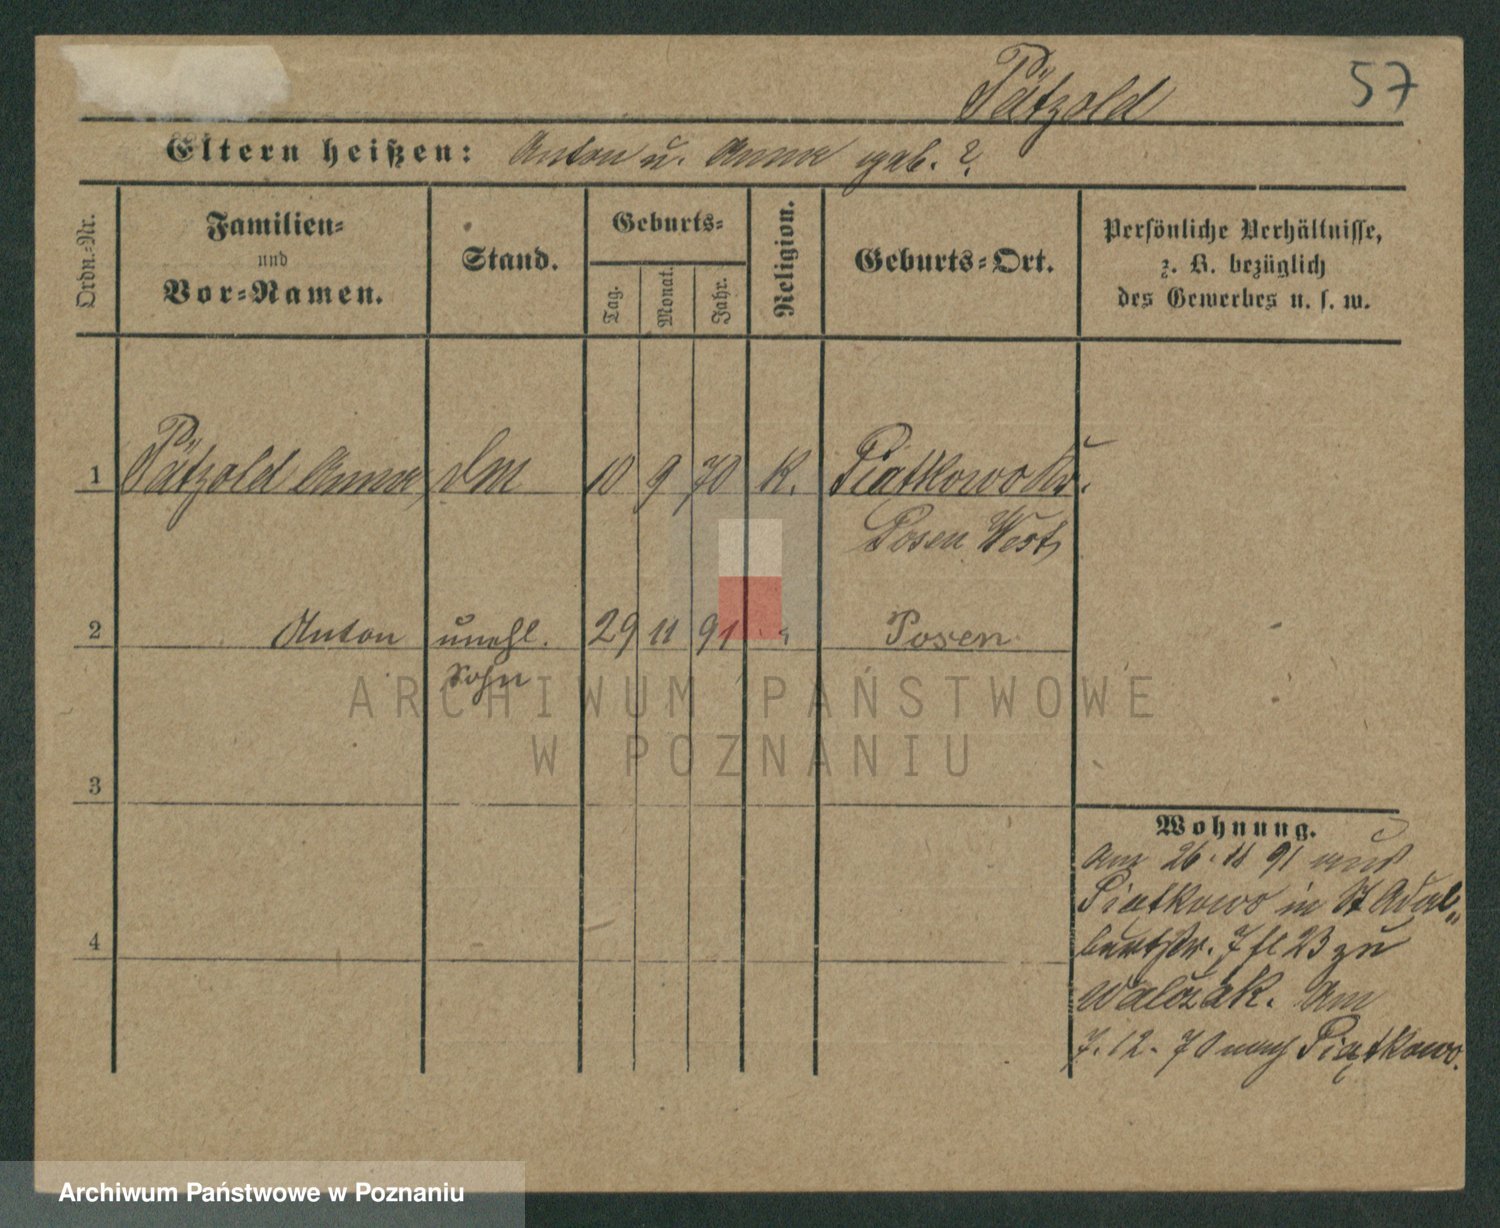 Pätzold 57
Eltern heißen: Anton u. Anna geb. ?
Ordn.-Nr.
Familien-
und
Vor-Namen.
Stand.
Geburts-
Tag.
Monat.
Jahr.
Religion.
Geburts-Ort.
Persönliche Verhältnisse,
z. B. bezüglich
des Gewerbes u. s. w.
1 Pätzold Anna 10 9 70 K. Piatkowo Kr.
Posen West
2 Anton unehl. 29 11 91 " Posen
Sohn
ARCHIWUM PAŃSTWOWE
W POZNANIU
3
4
Wohnung.
Am 26. 11 91 aus
Piatkowo in St Adal„
bertstr. 7 fl 23 zu
Walczak. Am
7. 12. 70 nach Piątkowo.
Archiwum Państwowe w Poznaniu